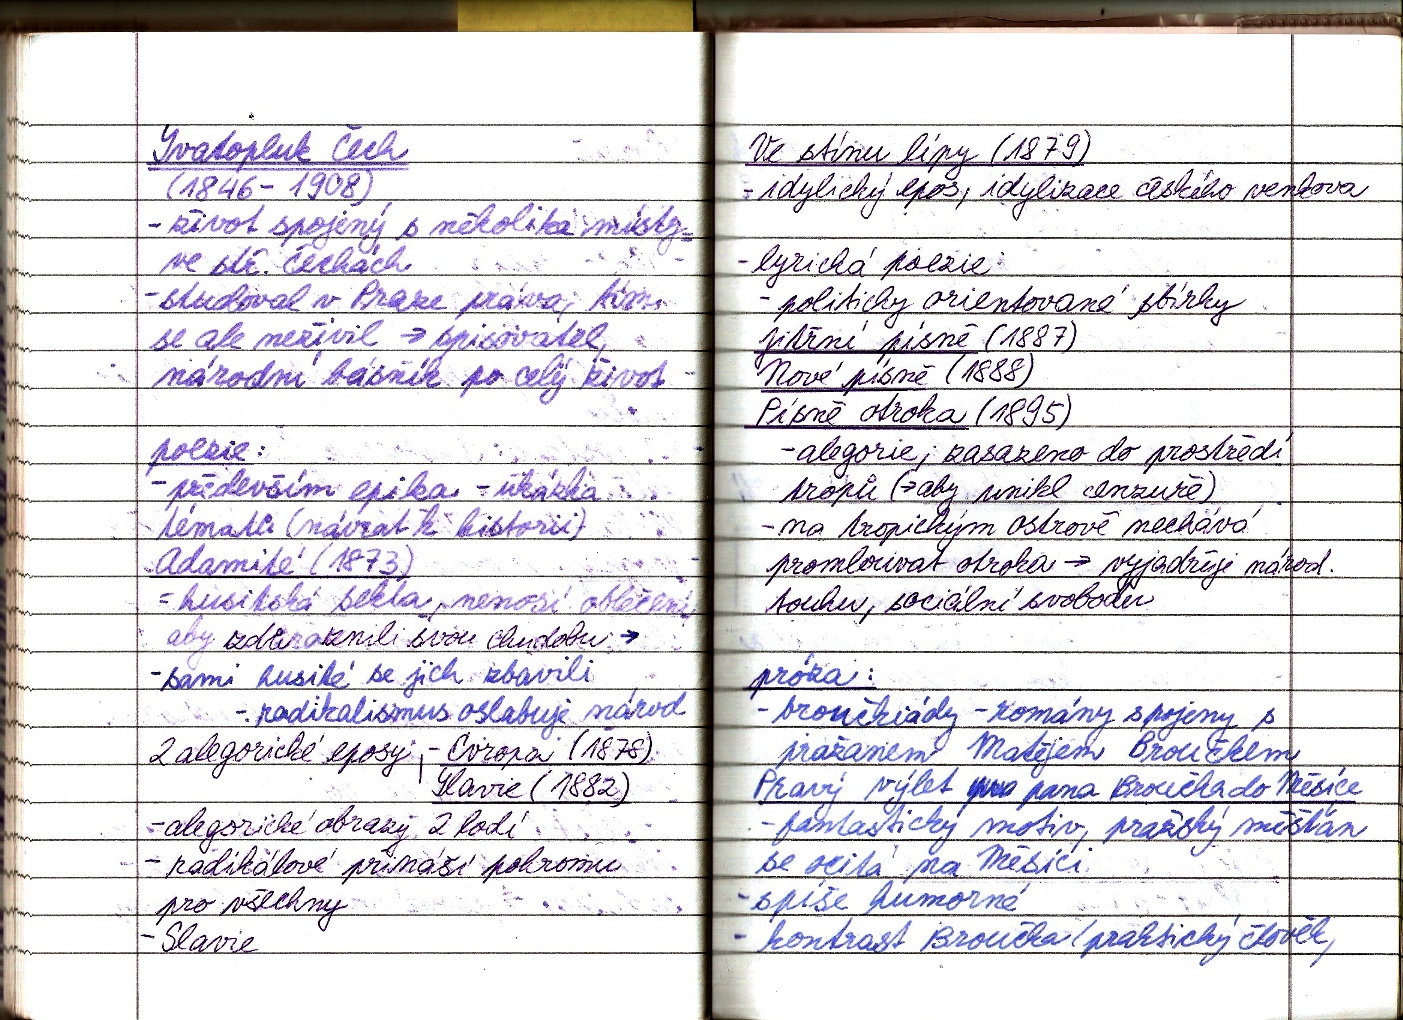 Svatopluk Čech
(1846 - 1908)
- život spojený s několika místy
ve stř. Čechách
- studoval v Praze práva, tím
se ale neživil → spisovatel,
národní básník po celý život
poezie:
- především epika - 
témata (návrat k historii)
Adamité (1873)
= husitská sekta, nenosí oblečení
aby zdůraznili svou chudobu →
- sami husité se jich zbavili
- radikalismus oslabuje národ
2 alegorické eposy - Evropa (1878)
Slavie (1882)
- alegorické obrazy 2 lodí
- radikálové přináší pohromu
pro všechny
- Slavie
Ve stínu lípy (1879)
- idylický epos, idylizace českého venkova
- lyrická poezie
- politicky orientované sbírky
Jitřní písně (1887)
Nové písně (1888)
Písně otroka (1895)
- alegorie, zasazeno do prostředí
tropů (→ aby unikl cenzuře)
- na tropickým ostrově nechává
promlouvat otroka → vyjadřuje národ.
touhu, sociální svobodu
próza:
- broučkiády - romány spojeny s
pražanem Matějem Broučkem
Pravý výlet pana Broučka do Měsíce
- fantastický motiv, pražský měšťan
se ocitá na Měsíci
- spíše humorné
- kontrast Broučka (praktický člověk,